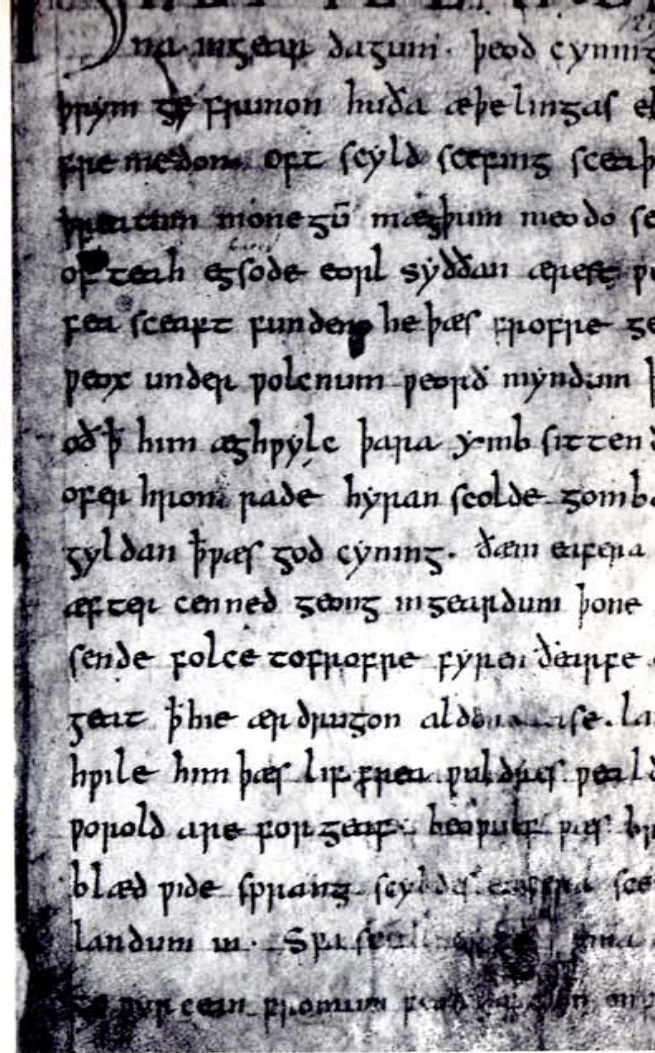 na ingear dagum. þeod cyning
þrym ge frunon huða æþelingas el
fre medon. oft scyld scefing sceaþ
þreatum monegū mægþum meodo se
of teah egsode eorl syððan ærest ƿe
fea sceaft funden he þæs frofre ge
ƿeox under ƿolcnum ƿeorð myndum þ
oðꝥ him æghƿylc þara ymb sittend
ofer hron rade hyran scolde gomba
gyldan ꝥƿæs god cyning. ðæm eafera
æfter cenned geong ingeardum þone
sende folce tofrofre fyren ðearfe
geat ꝥhie ær drugon aldor ase. la
hƿile him þæs lif frea ƿuldres ƿeald
ƿorold are for geaf. beoƿulf ƿæs br
blæd ƿide sprang scyldes eafera sce
landum in. Sƿa sceal
ge ƿyrcean fromum feoh